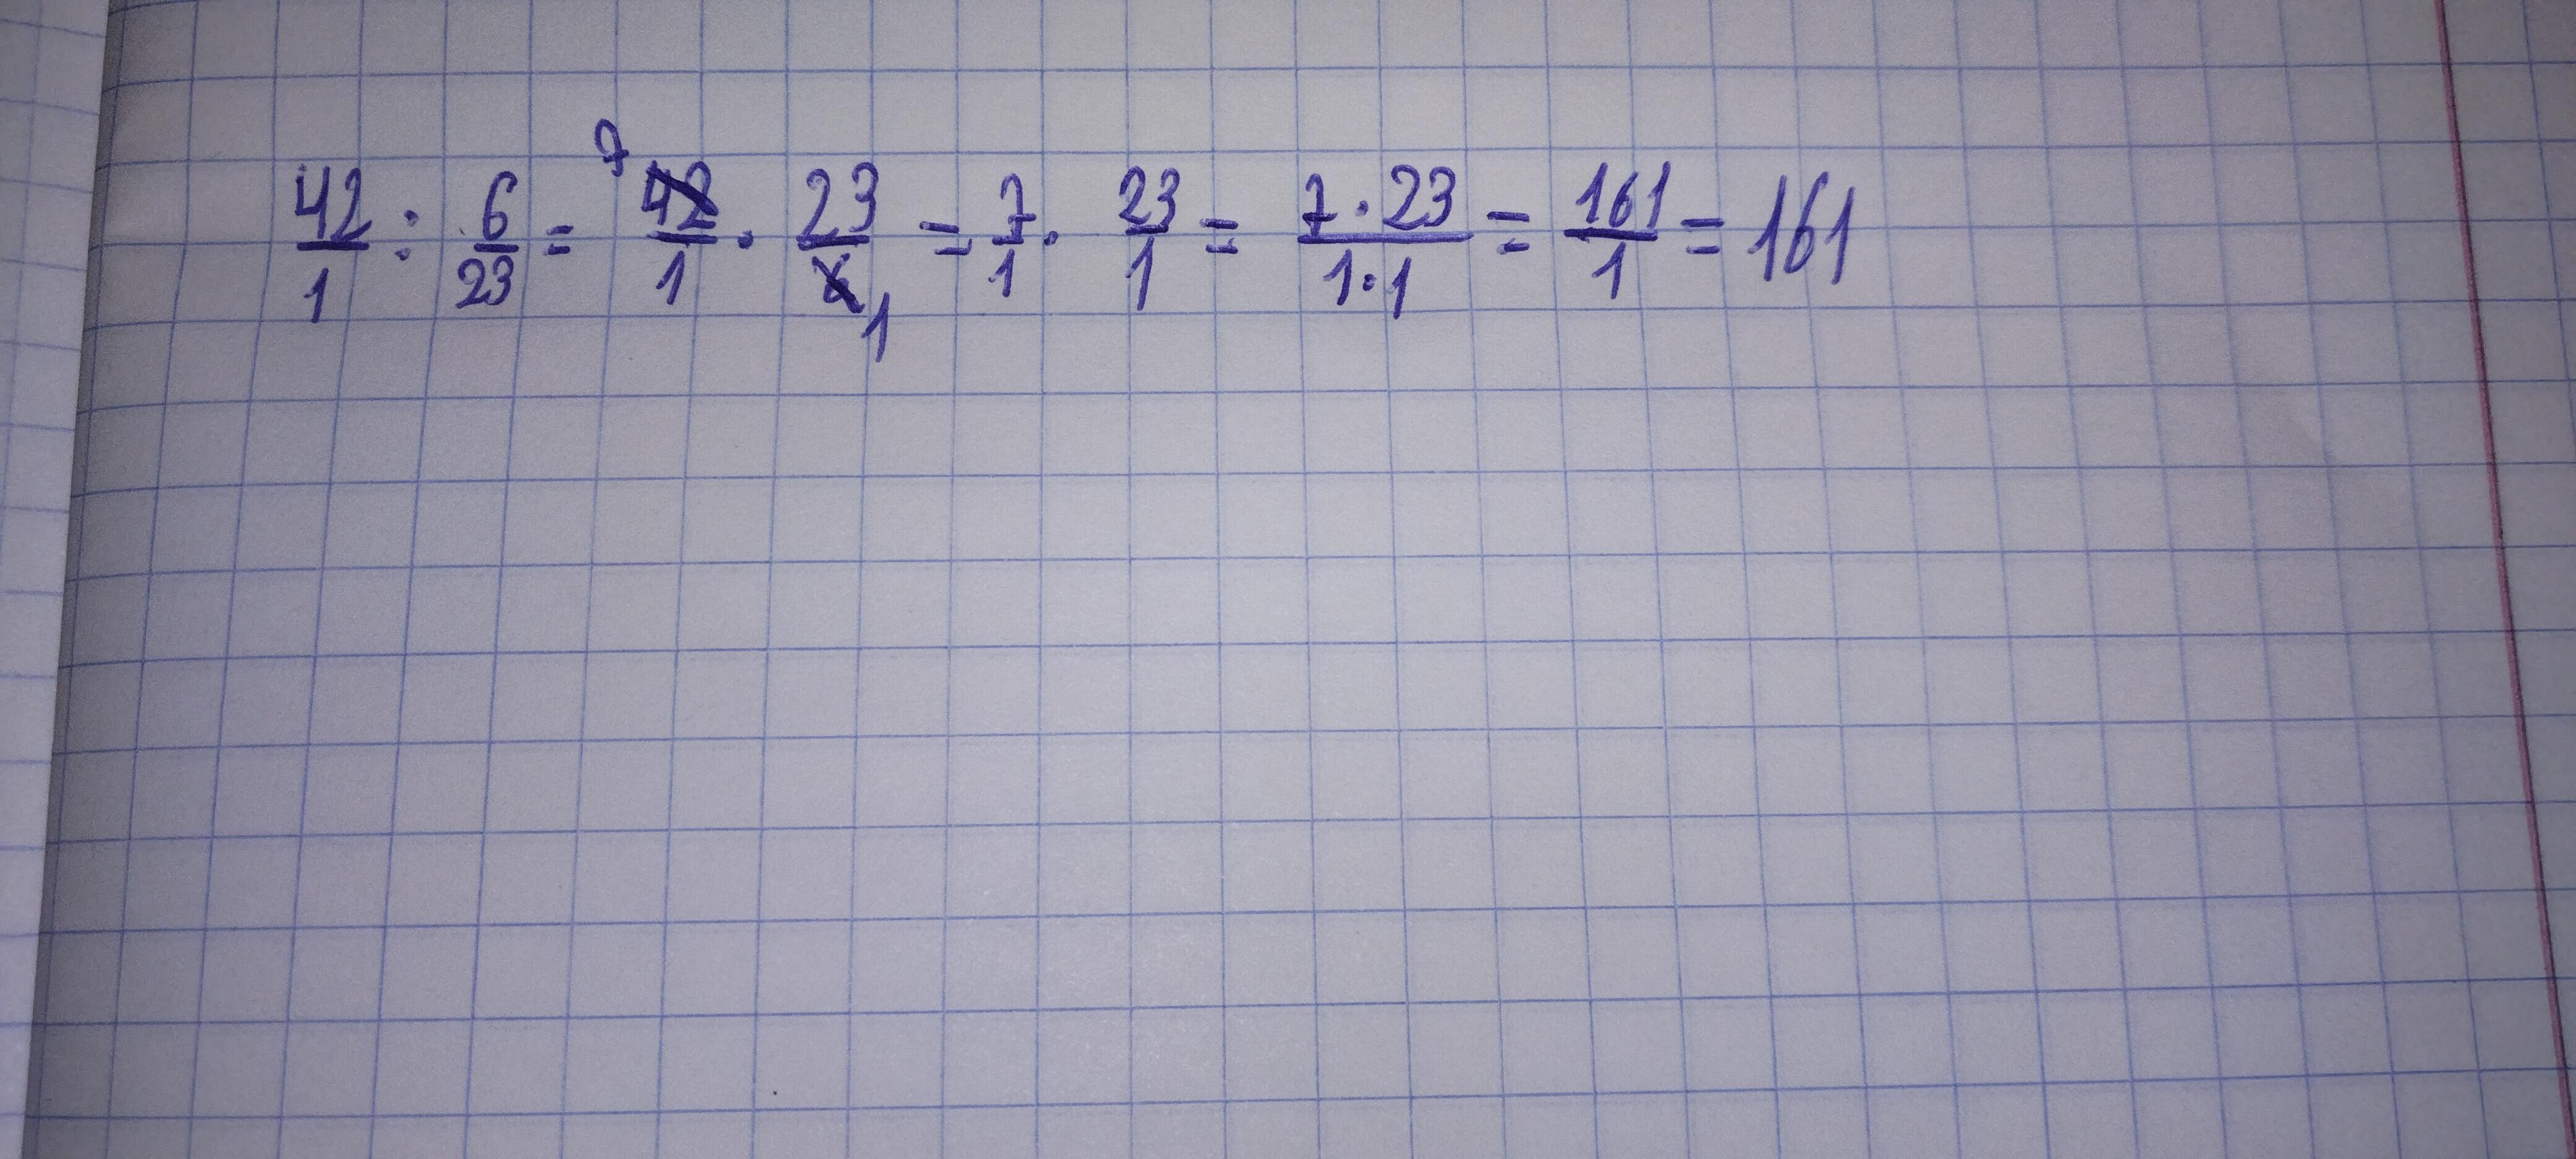 42/1 : 6/23 = 7 42/1 · 23/6 1 = 7/1 · 23/1 = 7·23/1·1 = 161/1 = 161